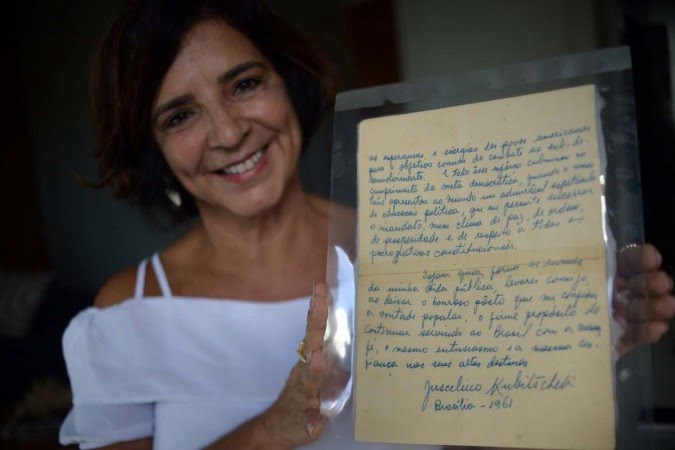 as esperanças e energias dos povos americanos
para o objetivo comum do combate ao sub-de-
senvolvimento. E todo esse esfôrço culminou no
cumprimento da meta democrática, quando o nosso
país apresentou ao mundo um admirável espetáculo
de educação política, que me permite encerrar
o mandato, num clima de paz, de ordem,
de prosperidade e de respeito a todas as
prerrogativas constitucionais.
Sejam quais forem os rumos
da minha vida pública, levarei comigo,
ao deixar o honroso pôsto que me confiou
a vontade popular, o firme propósito de
continuar servindo ao Brasil com a mesma
fé, o mesmo entusiasmo e a mesma con-
fiança nos seus altos destinos
Juscelino Kubitschek
Brasília - 1961